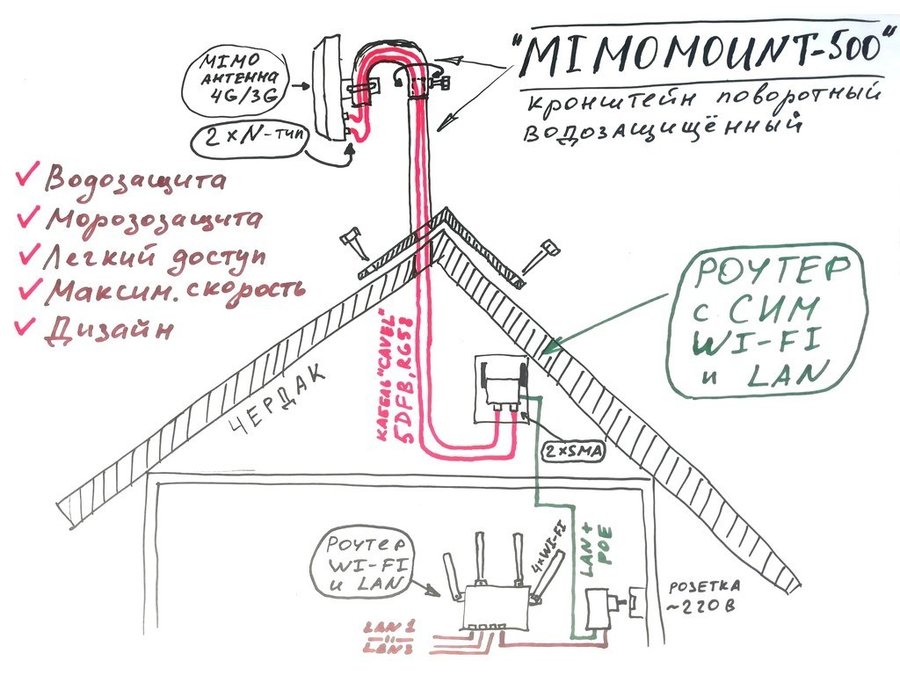 "MIMOMOUNT-500"
кронштейн поворотный
водозащищённый
MIMO
АНТЕННА
4G/3G
2×N-ТИП
✓ Водозащита
✓ Морозозащита
✓ Легкий доступ
✓ Максим. скорость
✓ Дизайн
РОУТЕР
с СИМ
WI-FI
и LAN
ЧЕРДАК
КАБЕЛЬ "CAVEL"
5DFB, RG58
2×SMA
РОУТЕР
WI-FI
и LAN
4×WI-FI
LAN +
POE
РОЗЕТКА
~220 В
LAN 1
"
LAN 3